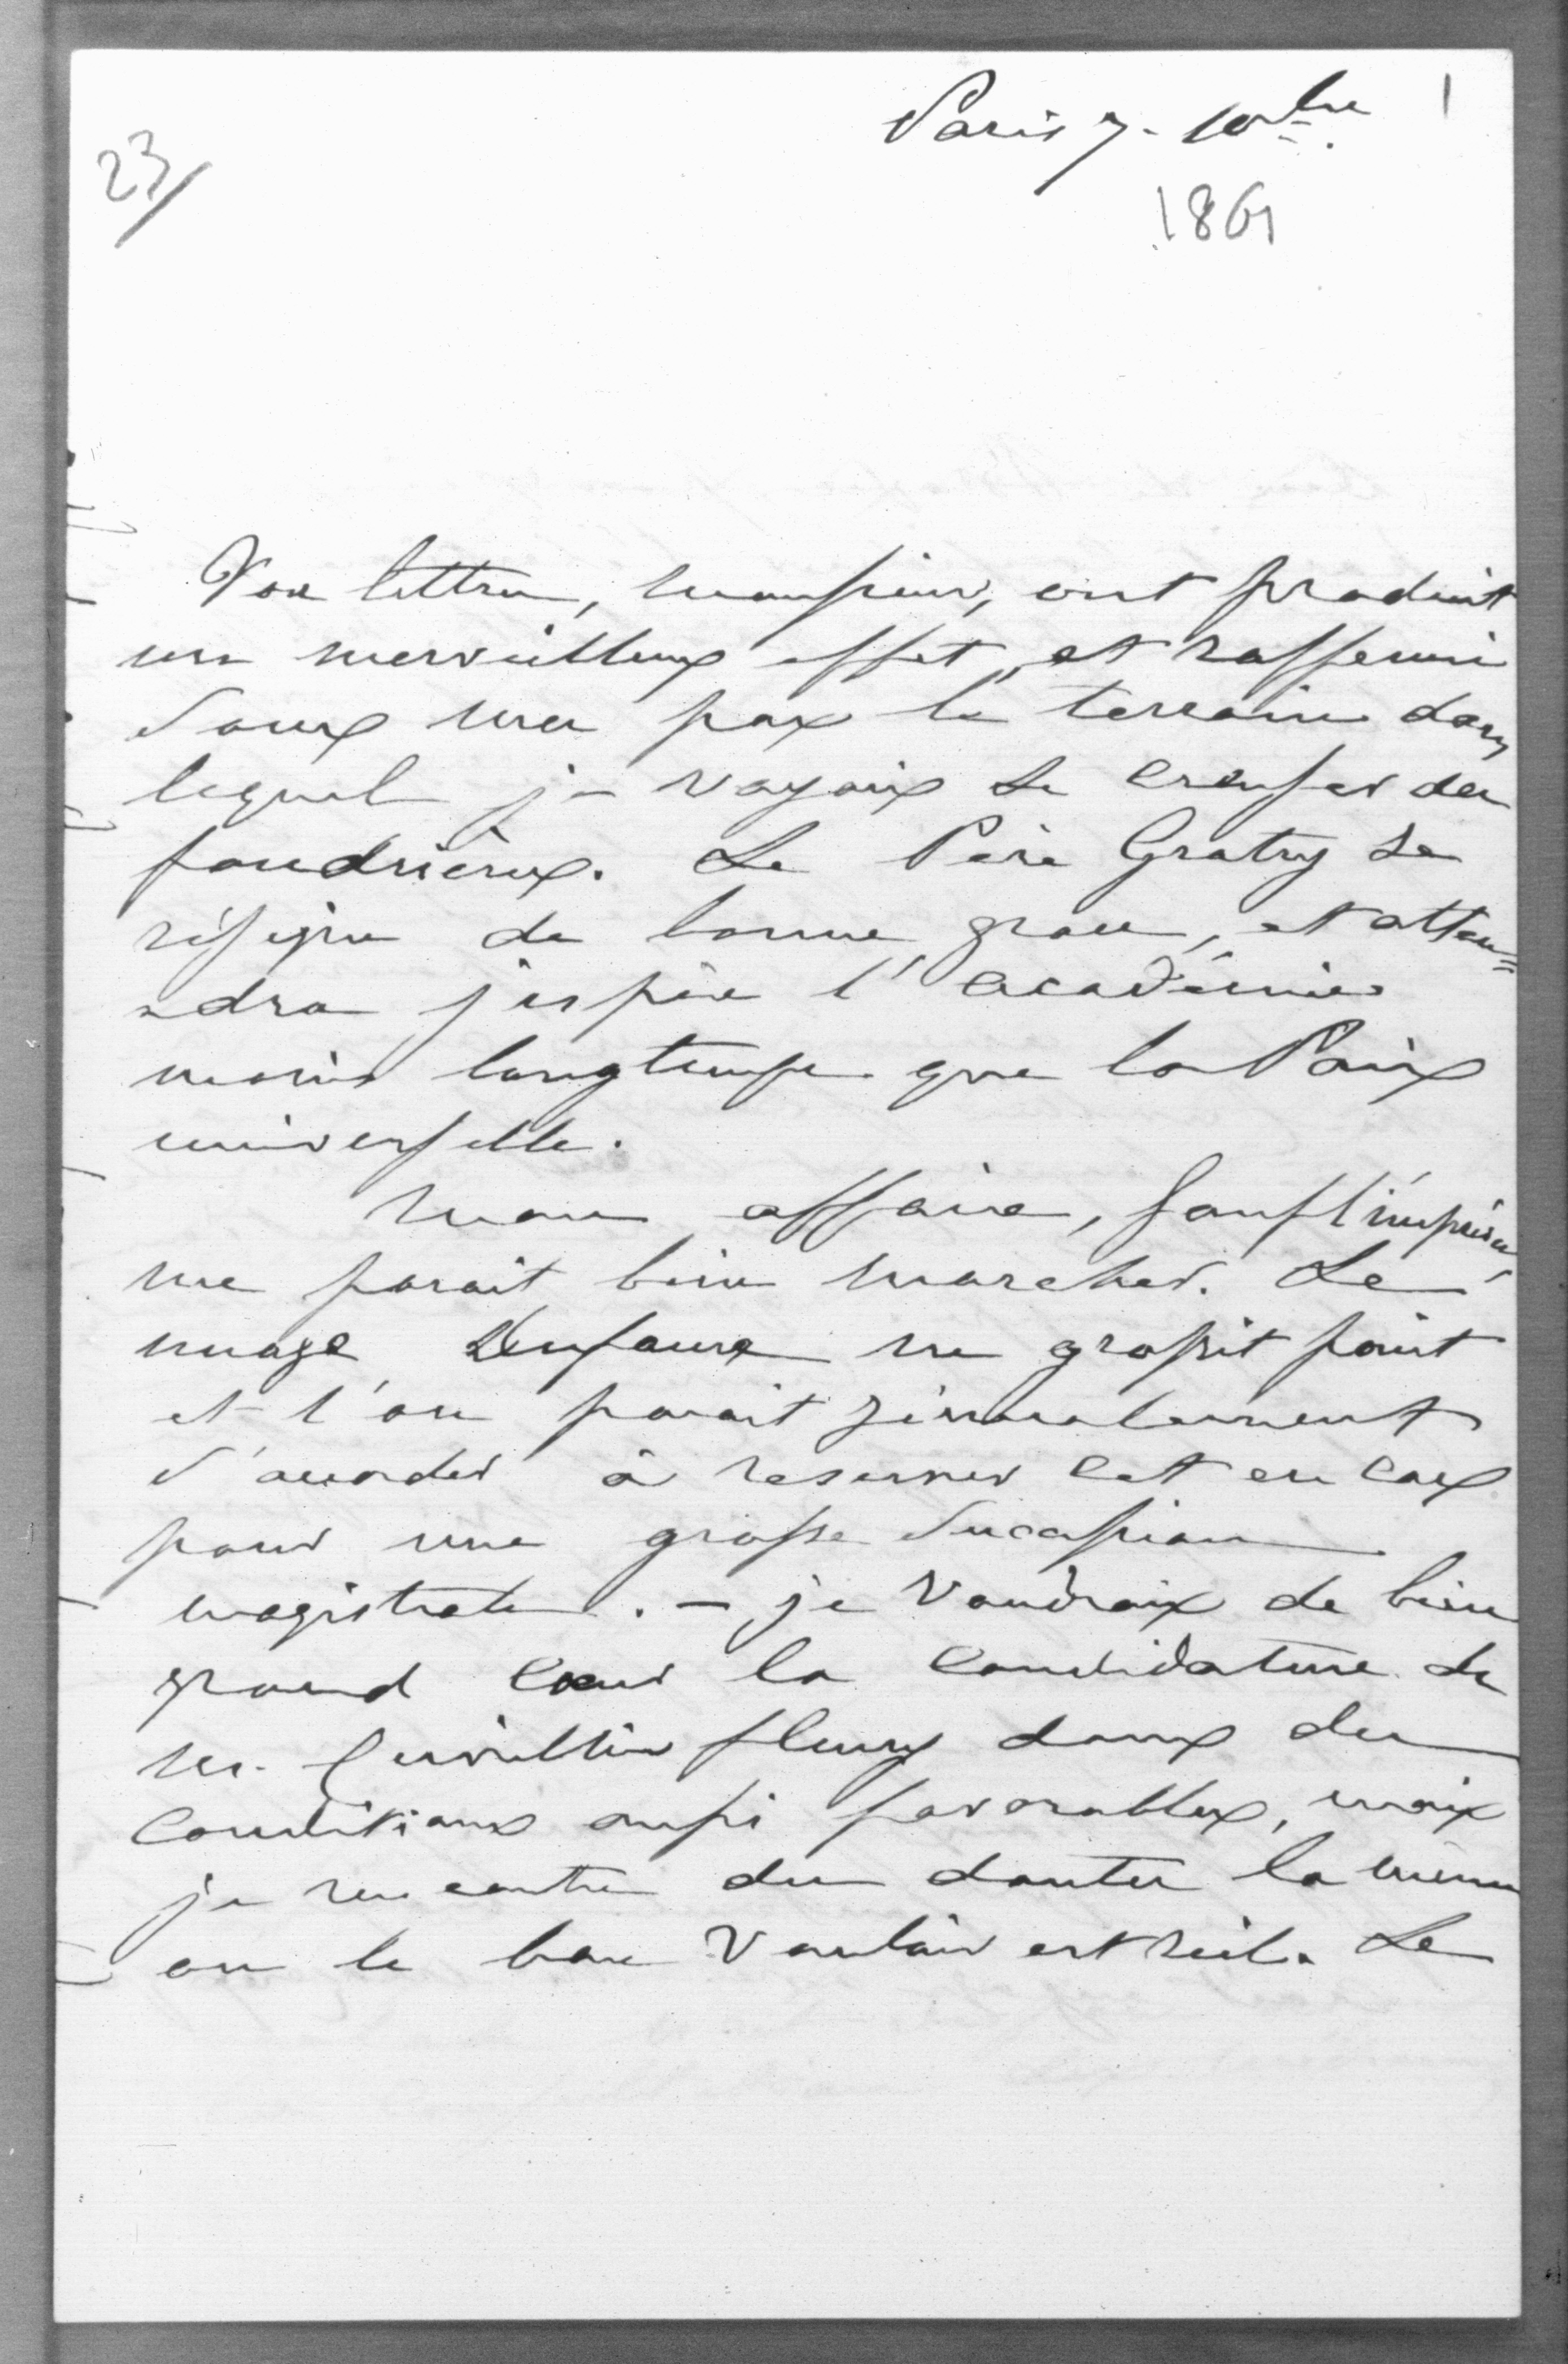 Paris 7. 10bre 1
23/
1861
Vos lettres, monsieur, ont produit
un merveilleux effet, et raffermi
sous mes pas le terrain dans
lequel je voyais se creuser des
fondrières. Le Père Gratry se
résigne de bonne grace, et atten=
=dra j'espère l'académie
moins longtemps que la Paix
universelle.
Mon affaire, sauf l'imprévu,
me parait bien marcher. Le
nuage Dufaure ne grossit point
et l'on parait généralement
s'accorder à reserver cet en cas
pour une grosse succession
magistrale. - je voudrais de bien
grand coeur la candidature de
M. Cuvillier fleury dans des
conditions aussi favorables, mais
je rencontre des doutes là même
ou le bon vouloir est réel. Le